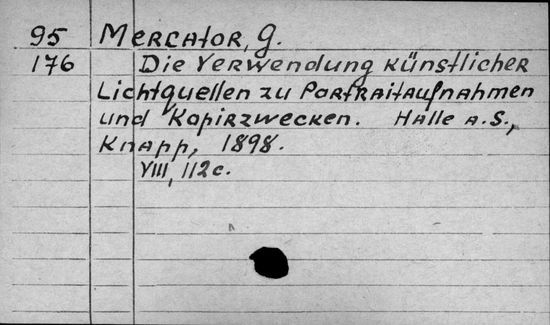 95 Mercator, G.
176 Die Verwendung künstlicher
Lichtquellen zu Portraitaufnahmen
und Kopirzwecken. Halle a. S.,
Knapp, 1898.
VIII, 112 c.